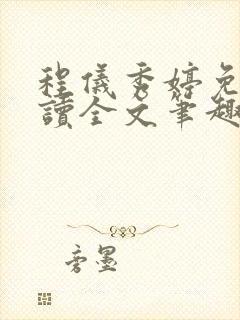 程儀秀婷免
讀全文筆趣
旁墨